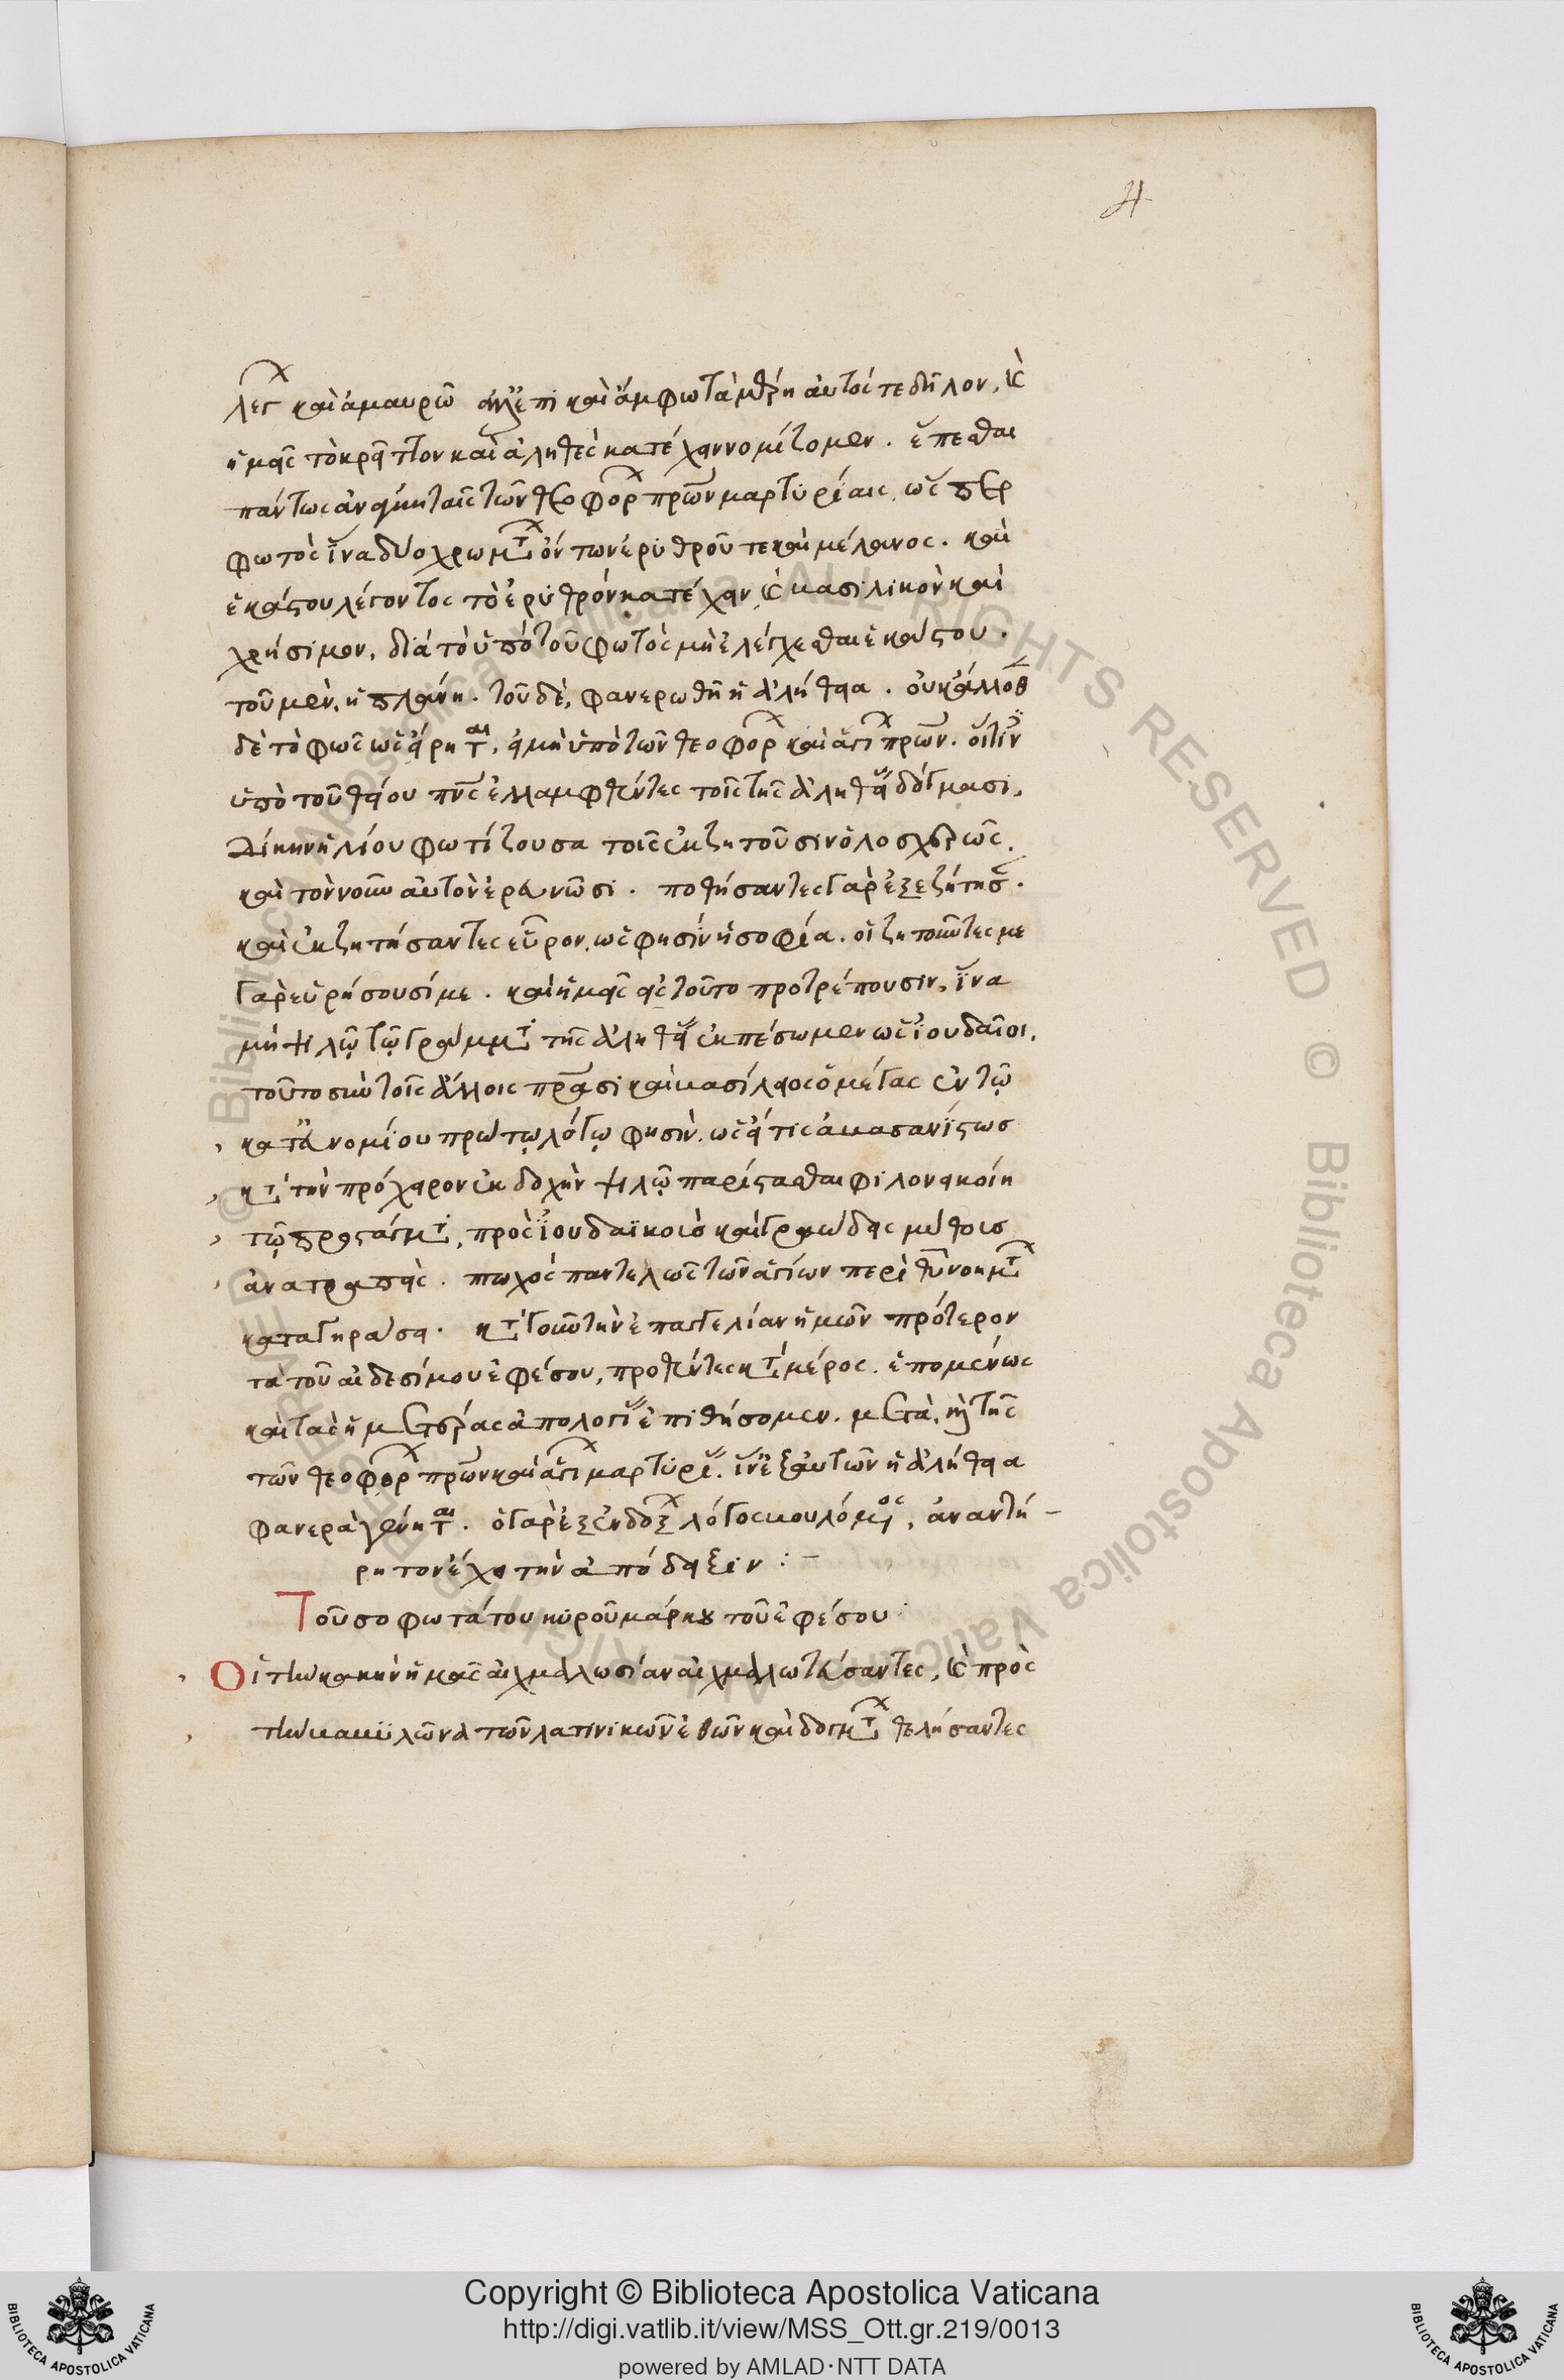 4
καὶ ἀμαυρῶ καὶ ἄμφω τὰ μέρη αὐτοί τε δῆλον, κ
ἡμᾶς τὸ κρεῖττον καὶ ἀληθὲς κατέχειν νομίζομεν. ἕπεσθαι
πάντως ἀνάγκη ταῖς τῶν θεοφόρ πρῶν μαρτυρίαις, ὥσπερ
φωτὸς ἵνα δύο χρωμτ ὄντων ἐρυθροῦ τε καὶ μέλανος. καὶ
ἑκάστου λέγοντος τὸ ἐρυθρὸν κατέχειν, κ βασιλικὸν καὶ
χρήσιμον, διὰ τὸ ὑπὸ τοῦ φωτὸς μὴ ἐλέγχεσθαι ἑκάστου.
τοῦ μὲν, ἡ πλάνη. τοῦ δὲ, φανερωθῆ ἡ ἀλήθεια. οὐκ ἄλλοθ
δὲ τὸ φῶς ὡς εἴρηται, εἰ μὴ ὑπὸ τῶν θεοφόρ καὶ ἁγί πρῶν. οἵτιν
ὑπὸ τοῦ θείου πνς ἐλλαμφθέντες τοῖς τῆς ἀληθεί δόγμασι,
δίκην ἡλίου φωτίζουσα τοῖς ἐκζητοῦσιν ὁλοσχερῶς,
καὶ τὸν νοῦν αὐτὸν ἐρευνῶσι. ποθήσαντες γὰρ ἐξεζήτησ.
καὶ ἐκζητήσαντες εὗρον, ὥς φησὶν ἡ σοφία. οἱ ζητοῦντές με
γὰρ εὑρήσουσί με. καὶ ἡμᾶς εἰς τοῦτο προτρέπουσιν, ἵνα
μὴ ψιλῶ τῶ γράμμτι τῆς ἀληθεί ἐκπέσωμεν ὡς ἰουδαῖοι,
τοῦτο σὺν τοῖς ἄλλοις πράσι καὶ βασίλειος ὁ μέγας ἐν τῶ
κατ' εὐνομίου πρώτῳ λόγῳ φησὶν. ὡς εἴ τις ἀβασανίστως
κτ τὴν πρόχειρον ἐκδοχὴν ψιλῶ παρίστασθαι φιλονεικοίη
τῶ προστάγμτι, πρὸς ἰουδαϊκοὺς καὶ γραώδεις μύθους
ἀνατραπεὶς. πτωχὸς παντελῶς τῶν ἁγίων περὶ θῦ νοημτ
καταγηράσει. κτ γοῦν τὴν ἐπαγγελίαν ἡμῶν πρότερον
τὰ τοῦ αἰδεσίμου ἐφέσου, προθέντες κτ μέρος. ἑπομένως
καὶ τὰς ἡμετέρας ἀπολογί ἐπιθήσομεν. μετὰ, κὴ τῆς
τῶν θεοφόρ πρῶν καὶ ἁγί μαρτυρί. ἵν' ἐξ αὐτῶν ἡ ἀλήθεια
φανερὰ γένηται. ὁ γὰρ ἐξ ἐνδόξ λόγος βουλόμος, ἀναντή-
ρητον ἔχει τὴν ἀπόδειξιν :-
Τοῦ σοφωτάτου κυροῦ μάρκου τοῦ ἐφέσου
Οἱ τὴν κακὴν ἡμᾶς αἰχμαλωσίαν αἰχμαλωτεύσαντες, κ πρὸς
τὴν βαβυλῶνα τῶν λατινικῶν ἐθῶν καὶ δογμτ θελήσαντες
Copyright © Biblioteca Apostolica Vaticana
http://digi.vatlib.it/view/MSS_Ott.gr.219/0013
powered by AMLAD·NTT DATA
BIBLIOTECA APOSTOLICA VATICANA
BIBLIOTECA APOSTOLICA VATICANA
© Biblioteca Apostolica Vaticana ALL RIGHTS RESERVED